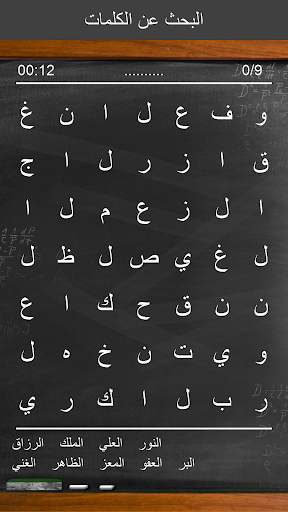 البحث عن الكلمات
00:12 .......... 0/9
و ف ع ل ا ن غ
ق ا ز ر ل ا ج
ا ل ز ع م ل ا
ل غ ي ص ل ظ ل
ن ن ق ح ك ا ع
و ي ت ن خ ه ل
ر ب ل ا ك ر ي
النور العلي الملك الرزاق
البر العفو المعز الظاهر الغني